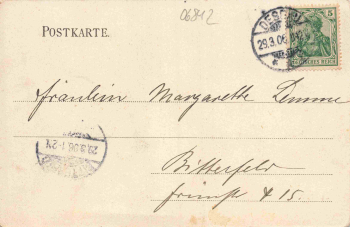 06842
POSTKARTE.
DESSAU
29.3.06
5
DEUTSCHES REICH
Fräulein Margarette
29.3.06.1-2N
Bitterfeld
15.